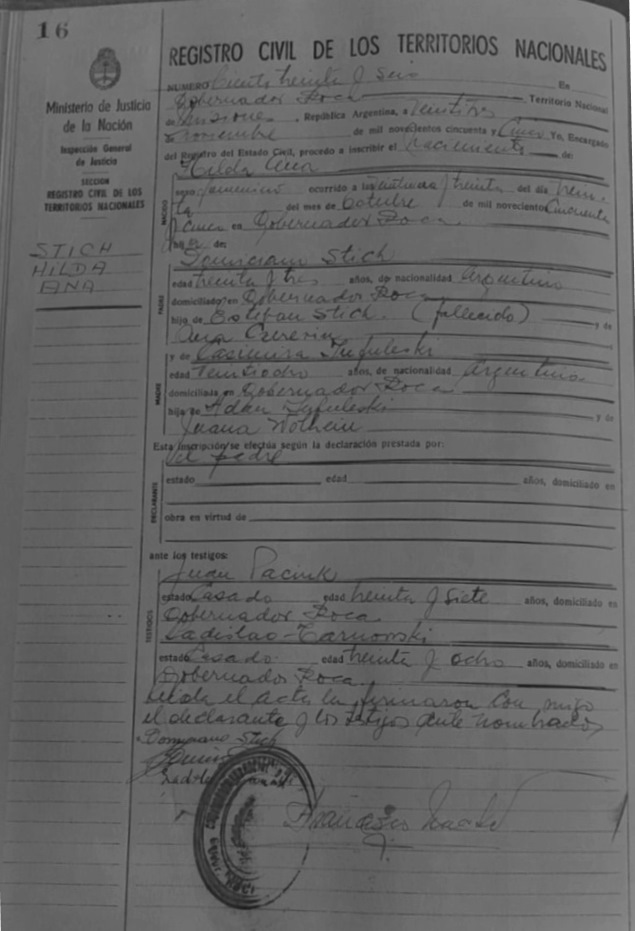 16
Ministerio de Justicia
de la Nación
Inspección General
de Justicia
SECCION
REGISTRO CIVIL DE LOS
TERRITORIOS NACIONALES
STICH
HILDA
ANA
REGISTRO CIVIL DE LOS TERRITORIOS NACIONALES
NUMERO Ciento treinta y seis En
Gobernador Roca, Territorio Nacional
de Misiones, República Argentina, a Veintitres
de noviembre de mil novecientos cincuenta y Cinco Yo, Encargado
del Registro del Estado Civil, procedo a inscribir el Nacimiento de:
Hilda Ana
NACIDO
sexo femenino ocurrido a las y treinta del día Trein-
ta del mes de Octubre de mil novecientos Cincuenta
y cinco en Gobernador Roca.
hija de:
PADRE
Stich
edad treinta y tres años, de nacionalidad Argentino
domiciliado en Gobernador Roca
hijo de Estefan Stich. (fallecido) y de
Ana
MADRE
y de Casimira
edad Veintiocho años, de nacionalidad Argentina
domiciliada en Gobernador Roca
hija de Adan y de
Juana
Esta inscripción se efectúa según la declaración prestada por:
DECLARANTE
el padre
estado edad años, domiciliado en
obra en virtud de
ante los testigos:
TESTIGOS
Juan
estado Casado edad treinta y Siete años, domiciliado en
Gobernador Roca.
Ladislao Tarnowski
estado Casado edad treinta y ocho años, domiciliado en
Gobernador Roca.
Leida el acta la firmaron con migo
el declarante y los testigos ante nombrados
Stich